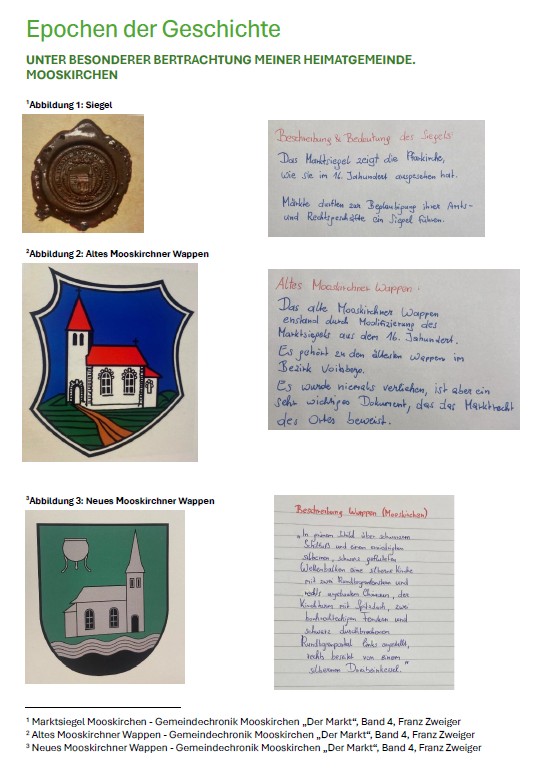 Epochen der Geschichte
UNTER BESONDERER BERTRACHTUNG MEINER HEIMATGEMEINDE.
MOOSKIRCHEN
¹Abbildung 1: Siegel
Beschreibung & Bedeutung des Siegels
Das Marktsiegel zeigt die Pfarrkirche,
wie sie im 16. Jahundert ausgesehen hat.
Märkte durften zur Beglaubigung ihrer Amts-
und Rechtsgeschäfte ein Siegel führen.
²Abbildung 2: Altes Mooskirchner Wappen
Altes Mooskirchner Wappen.
Das alte Mooskirchner Wappen
enstand durch Modifizierung des
Marktsiegels aus dem 16. Jahundert.
Es gehört zu den ältesten Wappen im
Bezirk Voitsberg.
Es wurde niemals verliehen, ist aber ein
sehr wichtiges Dokument, das das Marktrecht
des Ortes beweist.
³Abbildung 3: Neues Mooskirchner Wappen
Beschreibung Wappen (Mooskirchen)
„In grünem Schild über schwarzem
Schildfuß und einem erniedrigten
silbernen, schwarz gefluteten
Wellenbalken eine silberne Kirche
mit zwei Rundbogenfenstern und
rechts angebautem Chorraum, der
Kirchturm mit Spitzdach, zwei
hochrechteckigen Fenstern und
schwarz durchbrochenem
Rundbogenportal links angestellt,
rechts beseitet von einem
silbernen Dreibeinkessel."
¹ Marktsiegel Mooskirchen - Gemeindechronik Mooskirchen „Der Markt“, Band 4, Franz Zweiger
² Altes Mooskirchner Wappen - Gemeindechronik Mooskirchen „Der Markt“, Band 4, Franz Zweiger
³ Neues Mooskirchner Wappen - Gemeindechronik Mooskirchen „Der Markt“, Band 4, Franz Zweiger